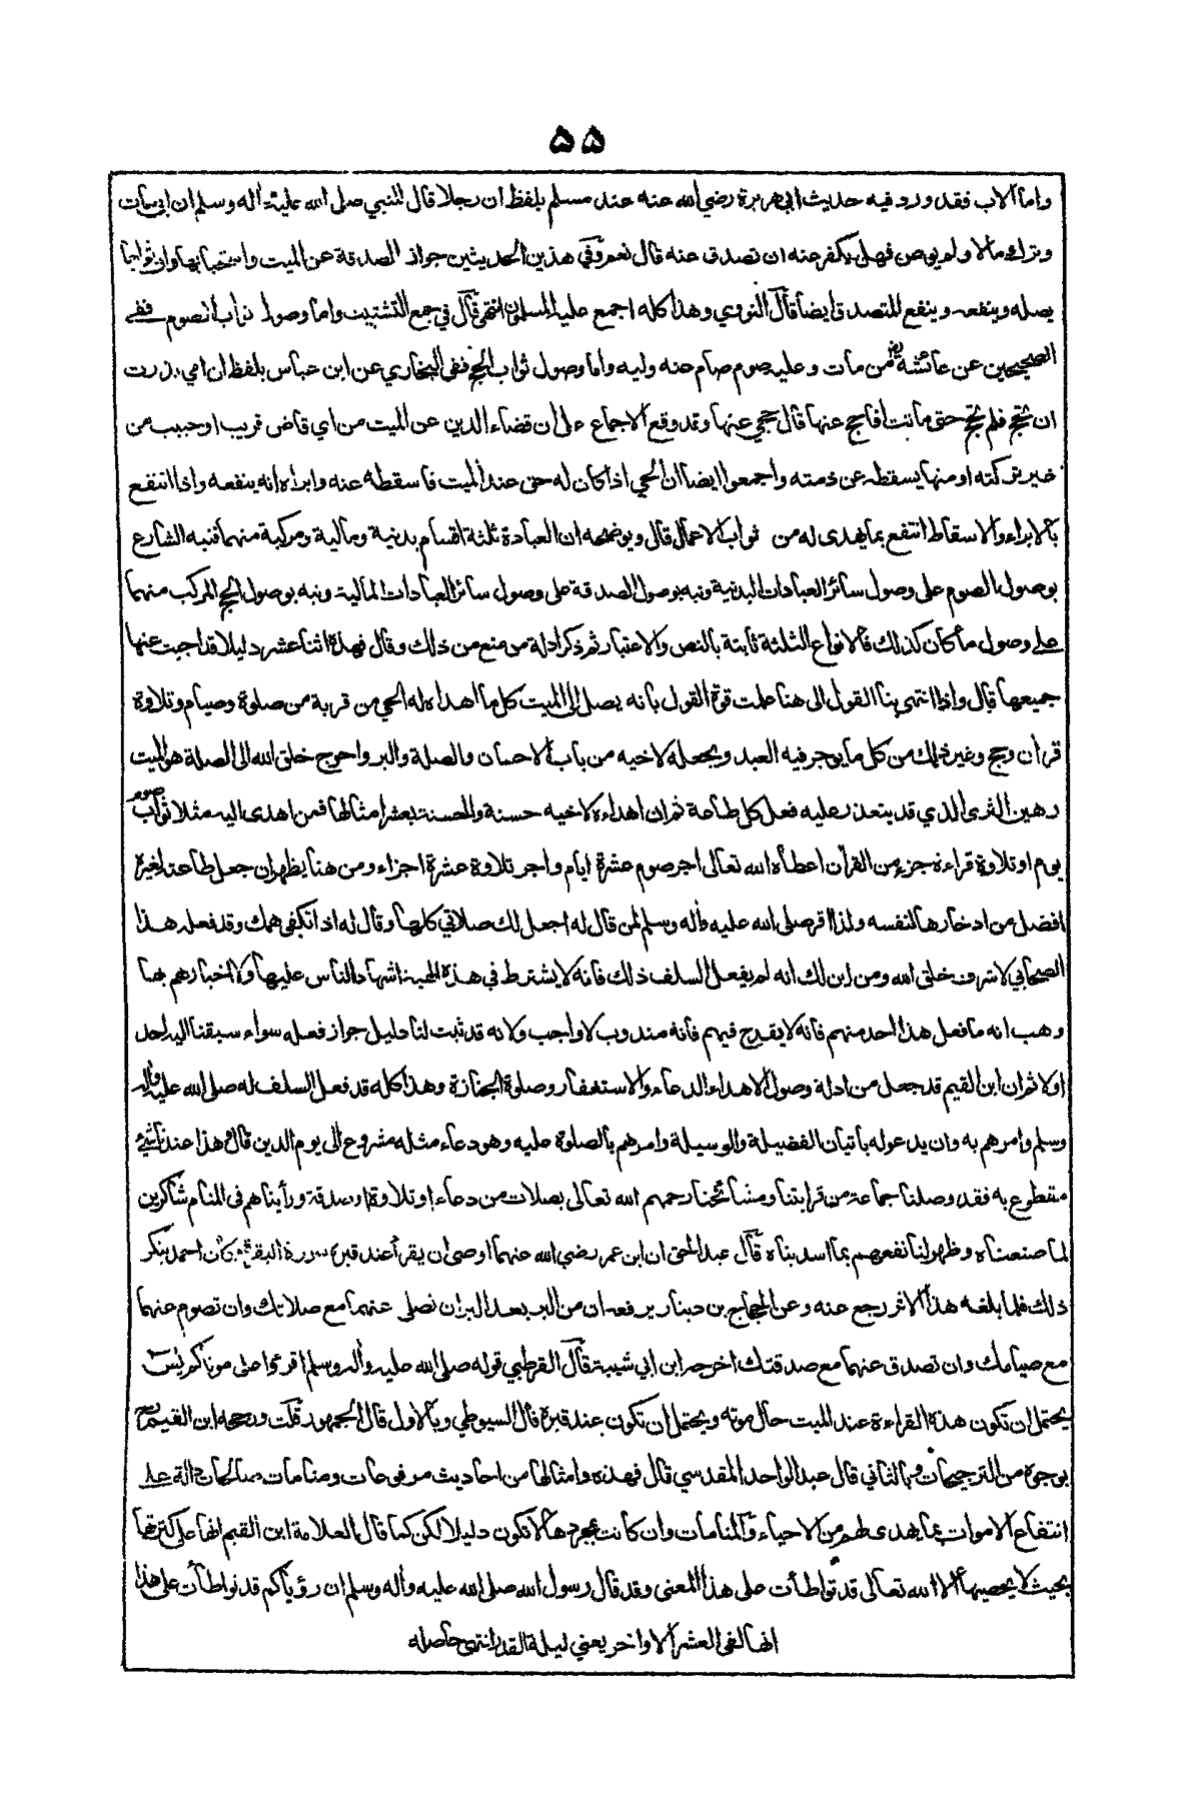 ۵۵
واما الاب فقد ورد فيه حديث ابي هريرة رضي الله عنه عند مسلم بلفظ ان رجلا قال للنبي صلى الله عليه وآله وسلم ان ابي مات
وترك مالا ولم يوص فهل يكفر عنه ان تصدق عنه قال نعم وفي هذين الحديثين جواز الصدقة عن الميت واستحبابها وان ثوابها
يصله وينفعه وينفع المتصدق ايضا قال النووي وهذا كله اجمع عليه المسلمون انتهى قال في جمع التشتيت واما وصول ثواب الصوم ففي
الصحيحين عن عائشة رض من مات وعليه صوم صام عنه وليه واما وصول ثواب الحج ففي البخاري عن ابن عباس بلفظ ان امي نذرت
ان تحج فلم تحج حتى ماتت افاحج عنها قال حجي عنها وقد وقع الاجماع على ان قضاء الدين عن الميت من اي قاض قريب او حبيب من
خير تركته او منها يسقطه عن ذمته واجمعوا ايضا ان الحي اذا كان له حق عند الميت فاسقطه عنه وابراه انه ينفعه واذا انتفع
بالابراء والاسقاط انتفع بما يهدى له من ثواب الاعمال قال ويوضحه ان العبادة ثلثة اقسام بدنية ومالية ومركبة منهما فنبه الشارع
بوصول الصوم على وصول سائر العبادات البدنية ونبه بوصول الصدقة على وصول سائر العبادات المالية ونبه بوصول الحج المركب منهما
على وصول ما كان كذلك فالانواع الثلثة ثابتة بالنص والاعتبار ثم ذكر ادلة من منع من ذلك وقال فهذه اثنا عشر دليلا قد اجبت عنها
جميعها قال واذا انتهى بنا القول الى هنا علمت قوة القول بانه يصل الى الميت كل ما اهداه له الحي من قربة من صلوة وصيام وتلاوة
قران وحج وغير ذلك من كل ما يوجر فيه العبد ويجعله لاخيه من باب الاحسان والصلة والبر واحوج خلق الله الى الصلة هو الميت
رهين الثرى الذي قد يتعذر عليه فعل كل طاعة ثم ان اهداءه لاخيه حسنة والحسنة بعشر امثالها فمن اهدى اليه مثلا ثواب صوم
يوم او تلاوة قراءة جزء من القرآن اعطاه الله تعالى اجر صوم عشرة ايام واجر تلاوة عشرة اجزاء ومن هنا يظهر ان جعل طاعته لغيره
افضل من ادخارها لنفسه ولذا اقر صلى الله عليه وآله وسلم لمن قال له اجعل لك صلاتي كلها وقال له اذا تكفى همك وقد فعله هذا
الصحابي لاشرف خلق الله ومن اين لك انه لم يفعل السلف ذلك فانه لا يشترط في هذه الهبة اشهاد الناس عليها ولا اخبارهم بها
وهب انه ما فعل هذا احد منهم فانه لا يقدح فيهم فانه مندوب لا واجب ولانه قد ثبت لنا دليل جواز فعله سواء سبقنا اليه احد
اولا ثم ان ابن القيم قد جعل من ادلة وصول الاهداء الدعاء والاستغفار وصلوة الجنازة وهذا كله قد فعل السلف له صلى الله عليه وآله
وسلم وامرهم به وان يدعو له باتيان الفضيلة والوسيلة وامرهم بالصلوة عليه وهو دعاء مثله مشروع الى يوم الدين قال هذا عندنا شيء
مقطوع به فقد وصلنا جماعة من قرابتنا ومشائخنا رحمهم الله تعالى بصلات من دعاء او تلاوة او صدقة ورأيناهم في المنام شاكرين
لما صنعناه وظهر لنا نفعهم بما اسديناه قال عبد الحق ان ابن عمر رضي الله عنهما اوصى ان يقرأ عند قبره سورة البقرة وكان احمد ينكر
ذلك فلما بلغه هذا الاثر رجع عنه وعن الحجاج بن دينار يرفعه ان من البر بعد البر ان تصلي عنهما مع صلاتك وان تصوم عنهما
مع صيامك وان تصدق عنهما مع صدقتك اخرجه ابن ابي شيبة قال القرطبي قوله صلى الله عليه وآله وسلم اقرءوا على موتاكم يس
يحتمل ان تكون هذه القراءة عند الميت حال موته ويحتمل ان تكون عند قبره قال السيوطي وبالاول قال الجمهور قلت ورجحه ابن القيم رح
بوجوه من الترجيحات وبالثاني قال عبد الواحد المقدسي قال فهذه وامثالها من احاديث مرفوعات ومنامات صالحات دالة على
انتفاع الاموات بما يهدى لهم من الاحياء والمنامات وان كانت بمجردها لا تكون دليلا لكن كما قال العلامة ابن القيم انها على كثرتها
بحيث لا يحصيها الا الله تعالى قد تواطأت على هذا المعنى وقد قال رسول الله صلى الله عليه وآله وسلم ان رؤياكم قد تواطأت على هذا
انها لفي العشر الاواخر يعني ليلة القدر انتهى حاصله